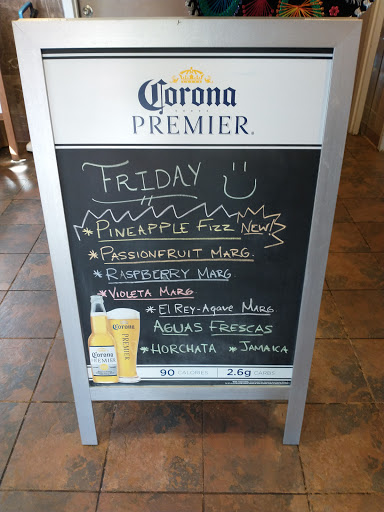 Corona
PREMIER®
FRIDAY
*PINEAPPLE FIZZ NEW!
*PASSIONFRUIT MARG.
*RASPBERRY MARG
*VIOLETA MARG.
*EL REY-AGAVE MARG
AGUAS FRESCAS
*HORCHATA *JAMAICA
Corona
PREMIER
Corona
PREMIER
90 CALORIES 2.6g CARBS